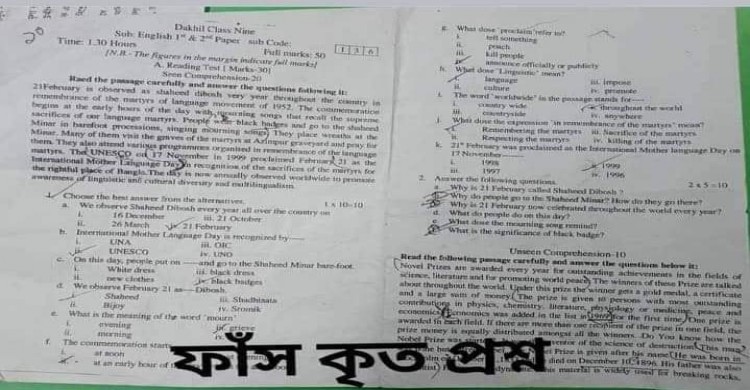 Dakhil Class Nine
Sub: English 1st & 2nd Paper sub Code:
Time: 1.30 Hours Full marks: 50
1 3 6
[N.B - The figures in the margin indicate full marks]
A. Reading Test [ Marks-30]
Seen Comprehension-20
Raed the passage carefully and answer the questions following it:
21February is observed as shaheed dibosh very year throughout the country in
remembrance of the martyrs of language movement of 1952. The commemoration
begins at the early hours of the day with mourning songs that recall the supreme
sacrifices of our language martyrs. People wear black badges and go to the shaheed
Minar in barefoot processions, singing mourning songs. They place wreaths at the
Minar. Many of them visit the graves of the martyrs at Azimpur graveyard and pray for
them. They also attend various programmes organised in remembrance of the language
martyrs. The UNESCO on 17 November in 1999 proclaimed February 21 as the
International Mother Language Day in recognition of the sacrifices of the martyrs for
the rightful place of Bangla. The day is now annually observed worldwide to promote
awareness of linguistic and cultural diversity and multilingualism.
1. Choose the best answer from the alternatives. 1 x 10=10
a. We observe Shaheed Dibosh every year all over the country on
i. 16 December iii. 21 October
ii. 26 March iv. 21 February
b. International Mother Language Day is recognized by----
i. UNA iii. OIC
ii. UNESCO iv. UNO
c. On this day, people put on -----and go to the Shaheed Minar bare-foot.
i. White dress iii. black dress
ii. new clothes iv. black badges
d. We observe February 21 as----Dibosh.
i. Shaheed iii. Shadhinata
ii. Bijoy iv. Sromik
e. What is the meaning of the word 'mourn'
i. evening iii. grieve
ii. morning iv.
f. The commemoration starts
i. at noon
ii. at an early hour of
g. What dose 'proclaim'refer to?
i. tell something
ii. preach
iii. kill people
iv. announce officially or publicly
h. What dose 'Linguistic' mean?
i. language iii. impose
ii. culture iv. promote
i. The word 'worldwide' in the passage stands for----
i. country wide throughout the world
iii. countryside iv. anywhere
j. What dose the expression 'in remembrance of the martyrs' mean?
i. Remembering the martyrs iii. Sacrifice of the martyrs
ii. Respecting the martyrs iv. killing of the martyrs
k. 21st February was proclaimed as the International Mother language Day on
17 November------
i. 1998 1999
iii. 1997 iv. 1996
2. Answer the following questions. 2 x 5 =10
a. Why is 21 February called Shaheed Dibosh ?
b. Why do people go to the Shaheed Minar? How do they go there?
c. Why is 21 February now celebrated throughout the world every year?
d. What do people do on this day?
e. What dose the mourning song remind?
f. What is the significance of black badge?
Unseen Comprehension-10
Read the following passage carefully and answer the questions below it:
Novel Prizes are awarded every year for outstanding achievements in the fields of
science, literature and for promoting world peace. The winners of these Prize are talked
about throughout the world. Under this prize the winner gets a gold medal, a certificate
and a large sum of money. The prize is given to persons with most outstanding
contributions in physics, chemistry, literature, physiology or medicine, peace and
economics. Economics was added in the list in 1969 for the first time. One prize is
awarded in each field. If there are more than one recipient of the prize in one field, the
prize money is equally distributed amongst all the winners. Do You know how the
Nobel Prize was started of the science of destruction. This man
Prize is given after his name. He was born in
died on December 10,1896. His father was also
This material is widely used for breaking rocks,
ফাঁস কৃত প্রশ্ন